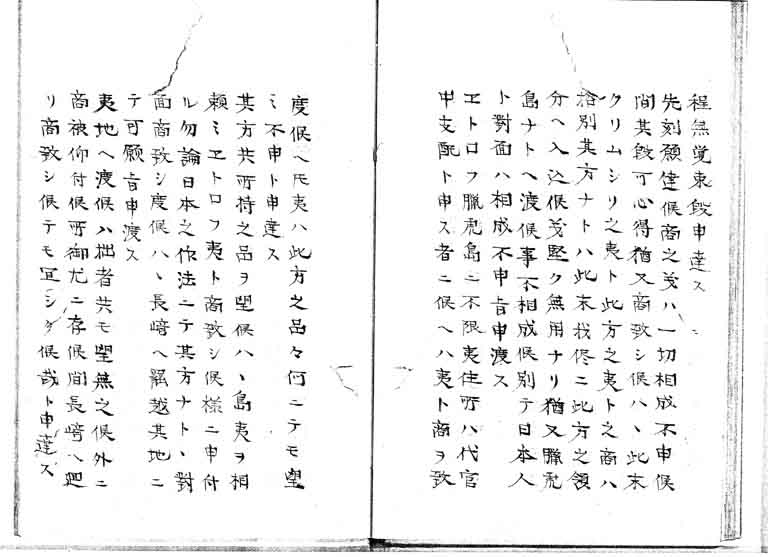 程無覚束段申達ス
先刻願達候商之義ハ一切相成不申候
間其段可心得猶又商致シ候ハヽ此末
クリムシリ之夷ト此方之夷ト之商ハ
格別其方ナトハ此末我侭ニ此方之領
分ヘ入込候義堅ク無用ナリ猶又臘虎
島ナトヘ渡候事不相成候別テ日本人
ト對面ハ相成不申旨申渡ス
エトロフ臘虎島ニ不限夷住所ハ代官
中支配ト申ス者ニ候ヘハ夷ト商ヲ致
度候ヘ圧夷ハ此方之品々何ニテモ望
ミ不申ト申達ス
其方共所持之品ヲ望候ハヽ島夷ヲ相
頼ミエトロフ夷ト商致シ候様ニ申付
ル勿論日本之作法ニテ其方ナトヽ對
面商致シ度候ハヽ長崎ヘ罷越其地ニ
テ可願旨申渡ス
夷地ヘ渡候ハ拙者共モ望無之候外ニ
商被仰付候所御尤ニ存候間長崎ヘ廻
リ商致シ候テモ宜シク候哉ト申達ス